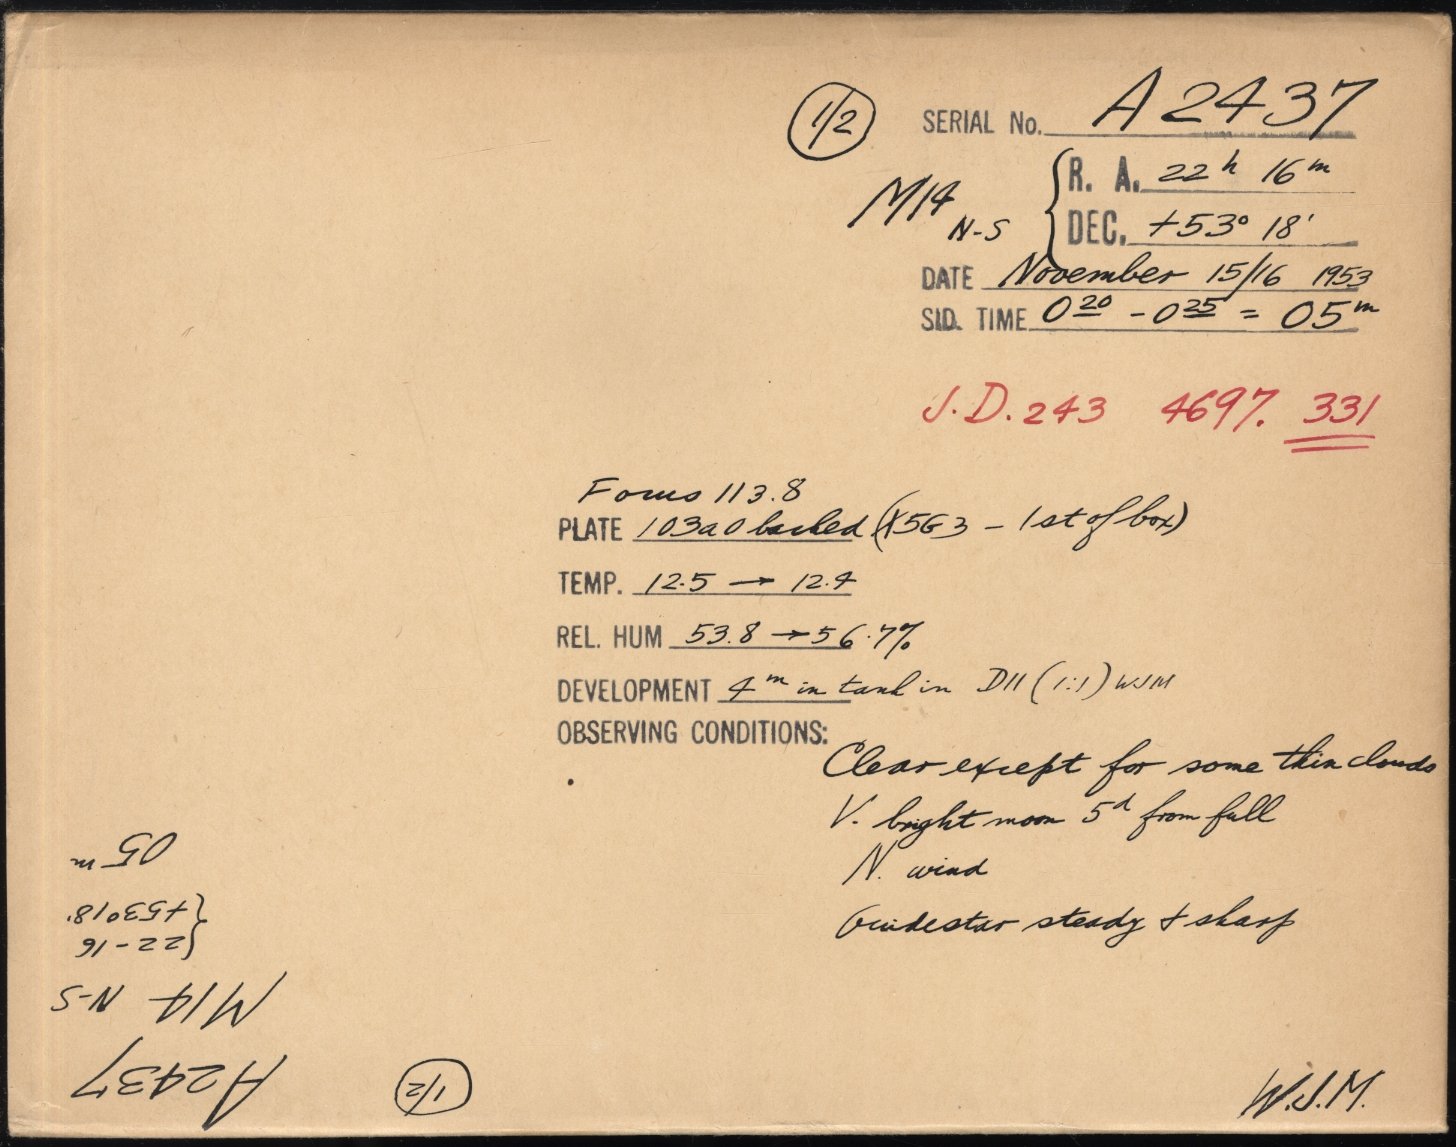 1/2 SERIAL No. A 2437
M14 N-S { R. A. 22h 16m
DEC. +53° 18'
DATE November 15/16 1953
SID. TIME 0 20 - 0 25 = 05m
J.D. 243 4697. 331
Focus 113.8
PLATE 103aO backed (X5G3 - 1st of box)
TEMP. 12.5 → 12.4
REL. HUM 53.8 → 56.7%
DEVELOPMENT 4m in tank in D11 (1:1) WJM
OBSERVING CONDITIONS:
Clear except for some thin clouds
V. bright moon 5d from full
N. wind
Guidestar steady + sharp
W.J.M.
1/2 A2437
M14 N-S
{22-16
{+53°18'
05m